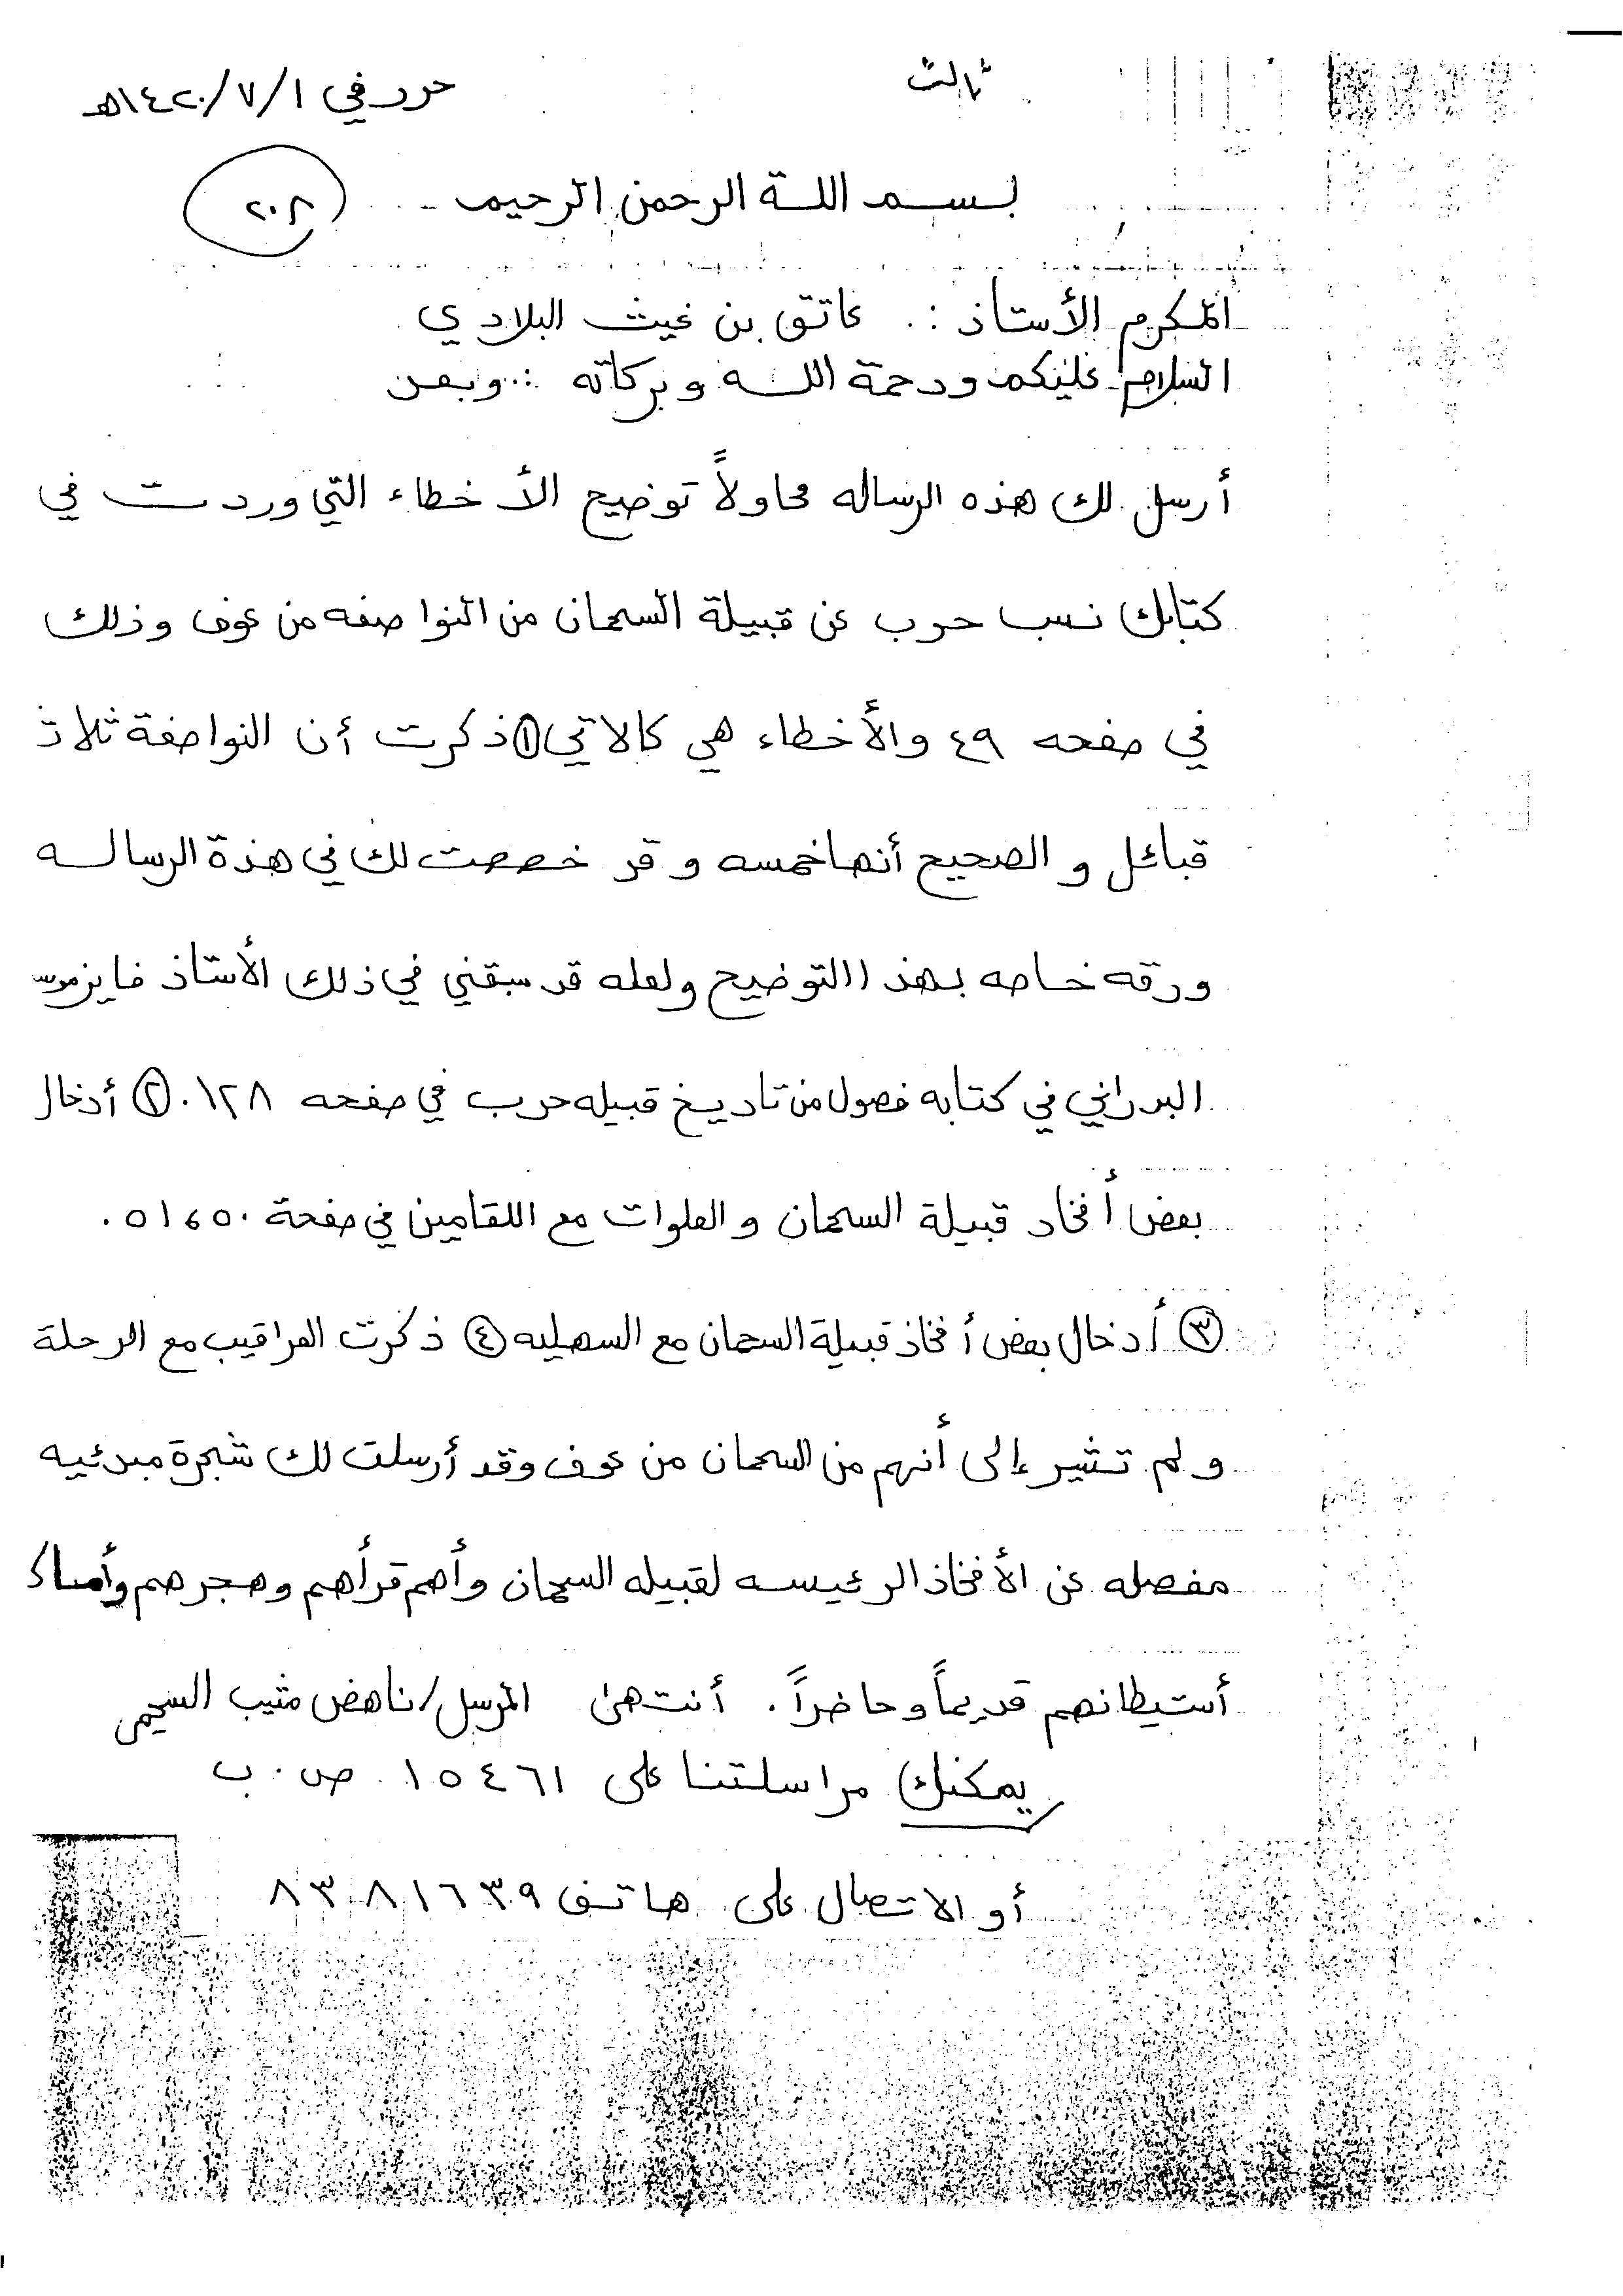 ثالث
حرر في ١/٧/١٤٢٠هـ
بسم اللة الرحمن الرحيم
٢٠٨
المكرم الأستاذ :. عاتق بن غيث البلادي
السلام عليكم ورحمة الله وبركاته :. وبعد
أرسل لك هذه الرساله محاولاً توضيح الأخطاء التي وردت في
كتابك نسب حرب عن قبيلة السحمان من النواصفه من عوف وذلك
في صفحه ٤٩ والأخطاء هي كالاتي ① ذكرت أن النواصفة ثلاث
قبائل و الصحيح أنها خمسه و قد خصصت لك في هذة الرساله
ورقه خاصه بهذا التوضيح ولعله قد سبقني في ذلك الأستاذ فايز موسى
البدراني في كتابه فصول من تاريخ قبيله حرب في صفحه ١٢٨. ② أدخال
بعض أفخاد قبيلة السحمان و العلوات مع اللقامين في صفحة ٥٠،٥١.
③ أدخال بعض أفخاذ قبيلة السحمان مع السهليه ④ ذكرت العراقيب مع الرحلة
و لم تشير إلى أنهم من السحمان من عوف وقد أرسلت لك شجرة مبدئيه
مفصله عن الأفخاذ الرئيسه لقبيله السحمان وأهم قرأهم وهجرهم وأماكن
أستيطانهم قديماً وحاضراً. أنتهىٰ المرسل/ناهض مثيب السحيمي
يمكنك مراسلتنا على ١٥٤٦١ ص.ب
أو الاتصال على هاتف ٨٣٨١٦٣٩